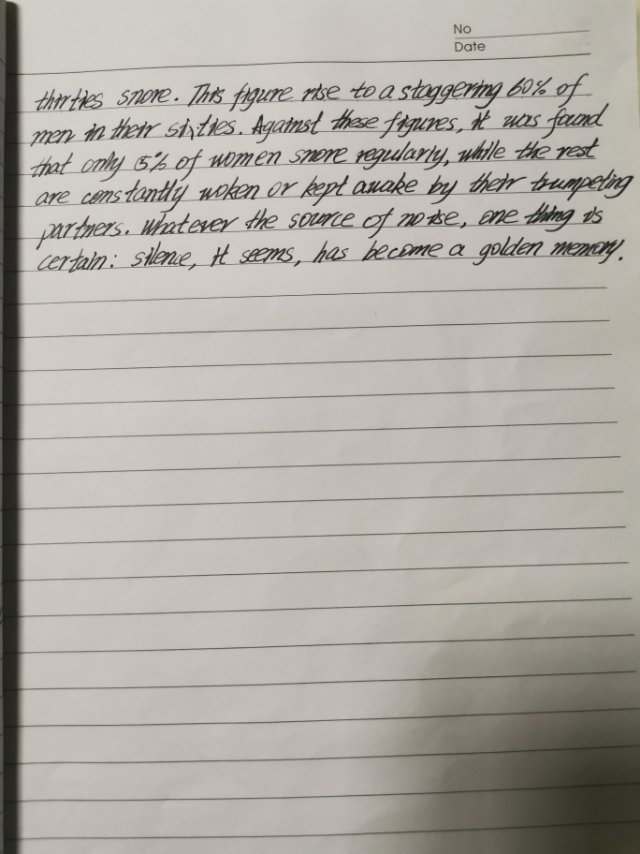 No
Date
thirties snore. This figure rise to a staggering 60% of
men in their sixties. Against these figures, it was found
that only 15% of women snore regularly, while the rest
are constantly woken or kept awake by their trumpeting
partners. Whatever the source of noise, one thing is
certain: silence, it seems, has become a golden memory.